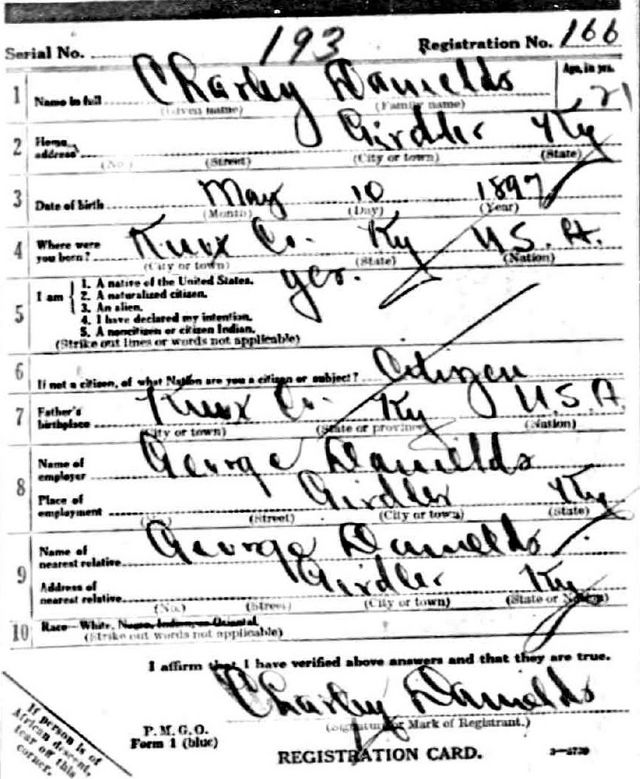 Serial No. 193 Registration No. 166
1 Name in full Charley Danields Age, in yrs. 21
(Given name) (Family name)
2 Home address Girdler Ky
(No.) (Street) (City or town) (State)
3 Date of birth May 10 1897
(Month) (Day) (Year)
4 Where were you born? Knox Co. Ky U.S.A.
(City or town) (State) (Nation)
5 I am 1. A native of the United States. yes.
2. A naturalized citizen.
3. An alien.
4. I have declared my intention.
5. A noncitizen or citizen Indian.
(Strike out lines or words not applicable)
6 If not a citizen, of what Nation are you a citizen or subject? Citizen
7 Father's birthplace Knox Co. Ky U.S.A.
(City or town) (State or province) (Nation)
8 Name of employer George Danields
Place of employment Girdler Ky
(Street) (City or town) (State)
9 Name of nearest relative George Danields
Address of nearest relative Girdler Ky
(No.) (Street) (City or town) (State or Nation)
10 Race—White, Negro, Indian, or Oriental.
(Strike out words not applicable)
I affirm that I have verified above answers and that they are true.
Charley Danields
(Signature or Mark of Registrant.)
P. M. G. O.
Form 1 (blue)
REGISTRATION CARD.
If person is of
African descent,
tear off this
corner.